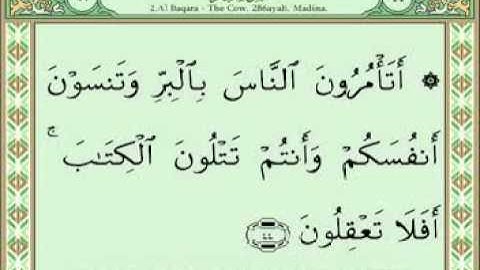 2.Al Baqara - The Cow, 286ayah, Madina.
۞ أَتَأْمُرُونَ ٱلنَّاسَ بِٱلْبِرِّ وَتَنسَوْنَ
أَنفُسَكُمْ وَأَنتُمْ تَتْلُونَ ٱلْكِتَـٰبَ ۚ
أَفَلَا تَعْقِلُونَ ٤٤